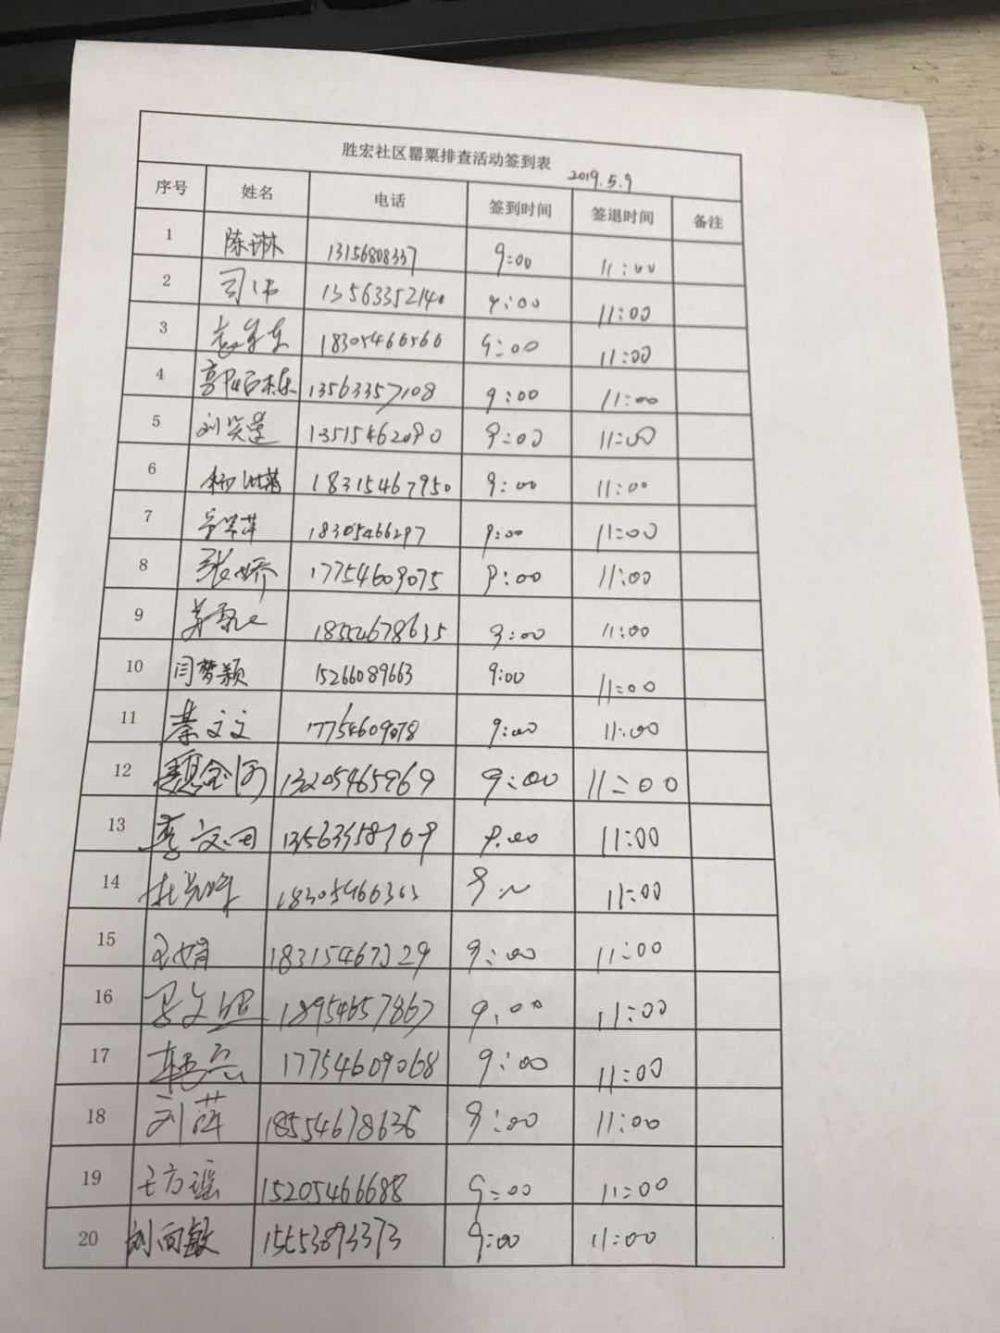 胜宏社区罂粟排查活动签到表 2019.5.9
序号 姓名 电话 签到时间 签退时间 备注
1 陈琳 13156808337 9:00 11:00
2 司伟 13563352140 9:00 11:00
3 18305466566 9:00 11:00
4 13563357108 9:00 11:00
5 刘笑莲 13515462090 9:00 11:00
6 18315467950 9:00 11:00
7 18305466297 9:00 11:00
8 张娇 17754609075 9:00 11:00
9 18554678635 9:00 11:00
10 闫梦颖 15266089663 9:00 11:00
11 綦文文 17754609078 9:00 11:00
12 魏金河 13205465969 9:00 11:00
13 李文田 9:00 11:00
14 杜光峰 18305466363 9: 11:00
15 王娟 18315467329 9:00 11:00
16 18954657867 9:00 11:00
17 韩云 17754609068 9:00 11:00
18 刘萍 18554678636 9:00 11:00
19 王方谣 15205466688 9:00 11:00
20 刘向敏 15653893373 9:00 11:00